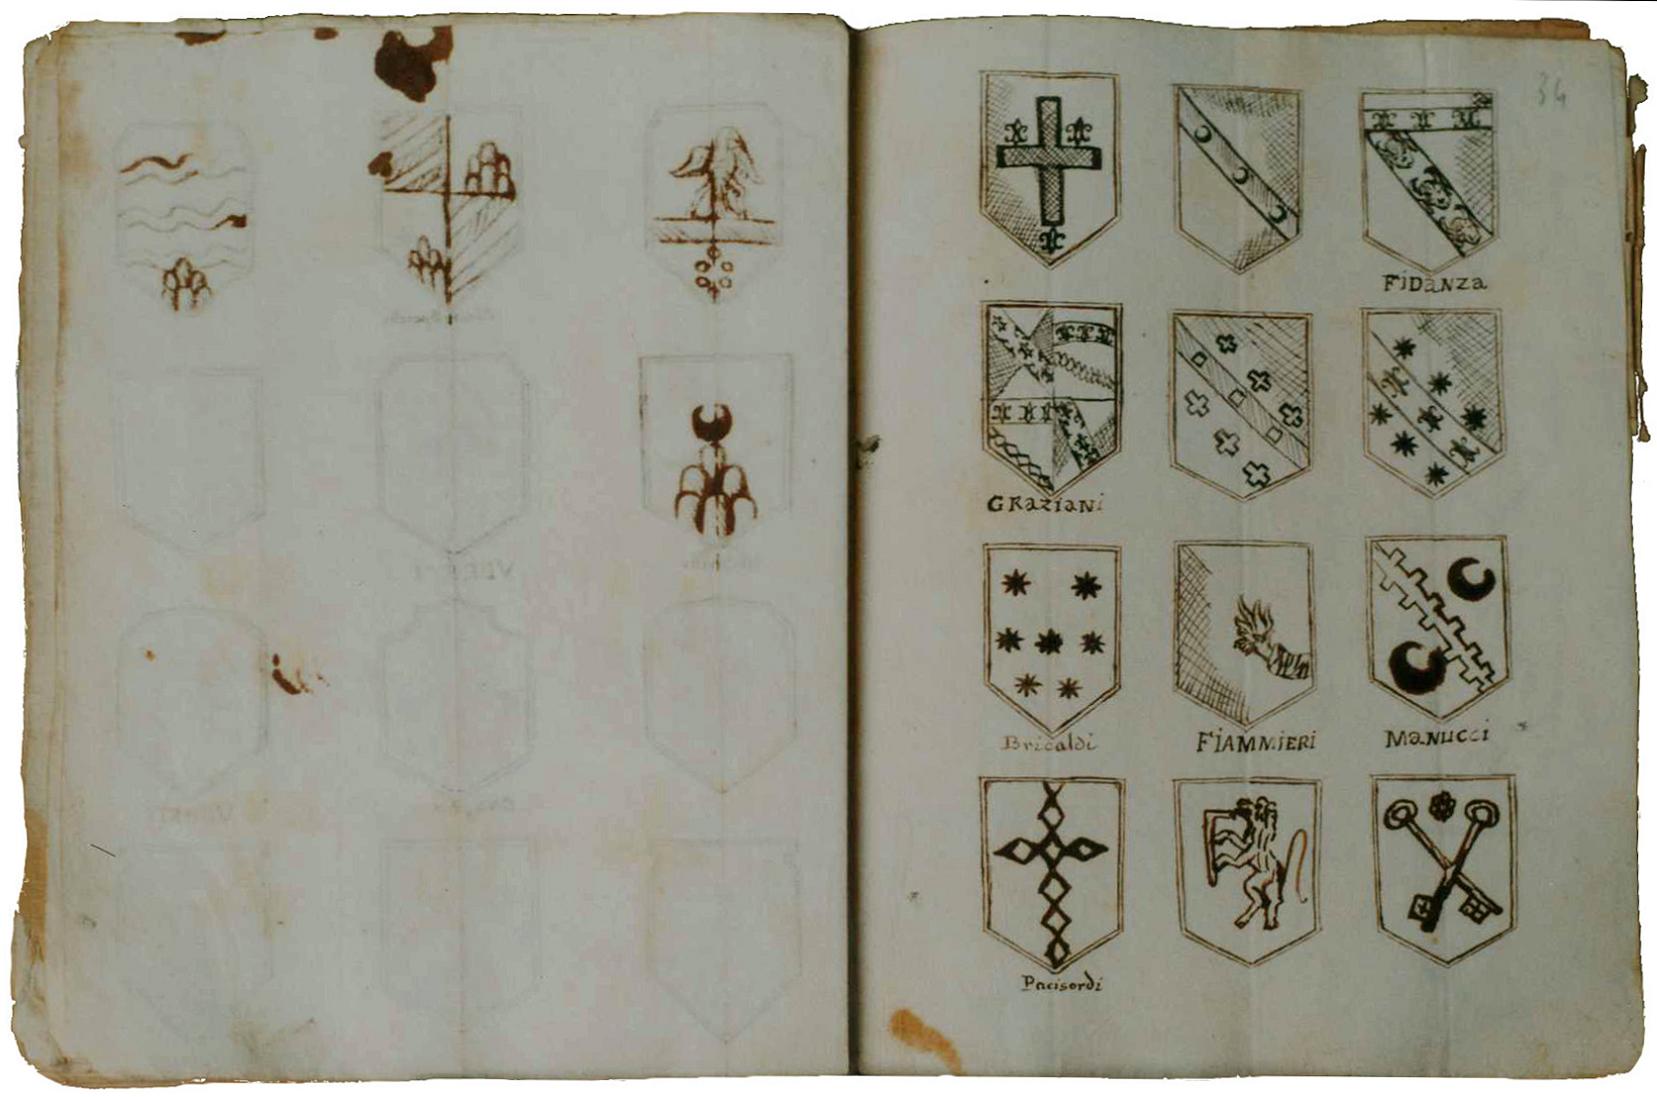 34
FiDaNZa
GRaziaNi
Bricaldi
FiAMMiERi
MaNucci
Pacisordi